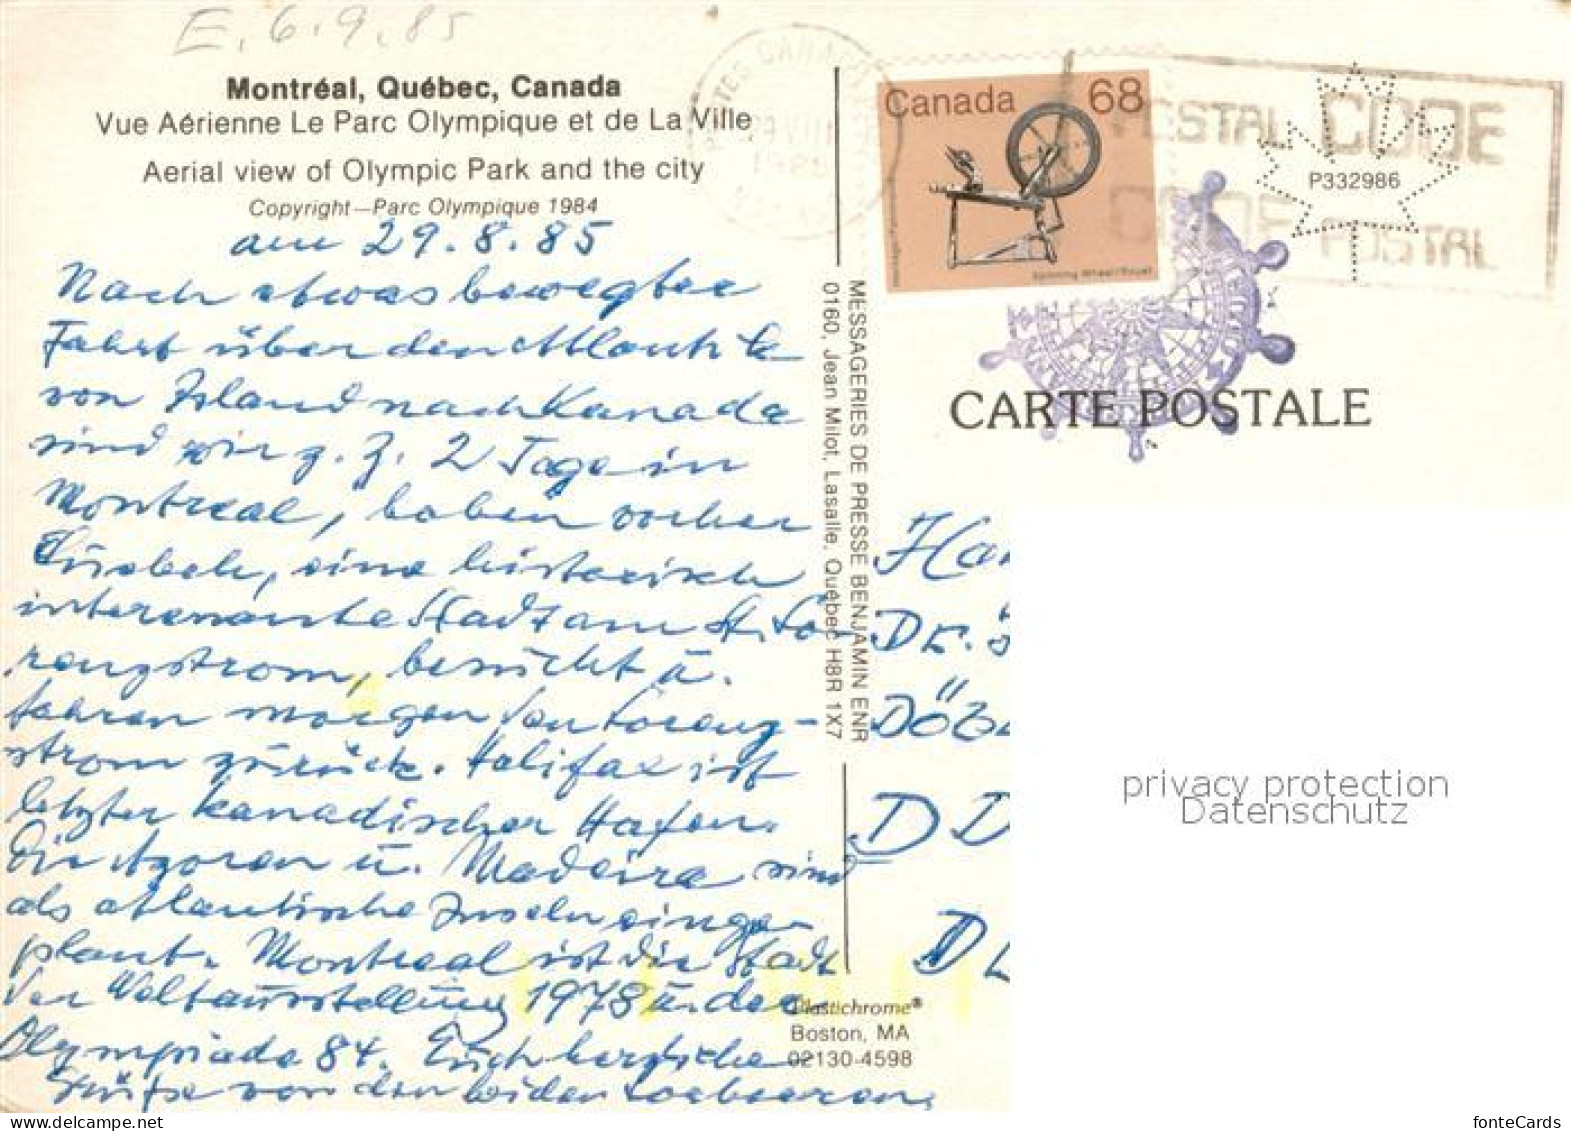 E. 6.9.85
Montréal, Québec, Canada
Vue Aérienne Le Parc Olympique et de La Ville
Aerial view of Olympic Park and the city
Copyright—Parc Olympique 1984
am 29.8.85
Nach etwas bewegter
Fahrt über den Atlantik
von Island nach Kanada
sind wir z. Z. 2 Tage in
Montreal, haben vorher
Quebek, eine historisch
interessante Stadt am St. Lo-
renzstrom, besucht u.
fahren morgen den Lorenz-
strom zurück. Halifax ist
letzter kanadischer Hafen.
Die Azoren u. Madeira sind
als atlantische Inseln einge-
plant. Montreal ist die Stadt
der Weltausstellung 1978 u. der
Olympiade 84. Euch herzliche
Grüße von den beiden
MESSAGERIES DE PRESSE BENJAMIN ENR
0160, Jean Milot, Lasalle, Québec H8R 1X7
Plastichrome®
Boston, MA
02130-4598
POSTES CANADA
Canada 68
Spinning Wheel/Rouet
POSTAL CODE
CODE POSTAL
P332986
CARTE POSTALE
Ha
Dr.
Döb
DD
privacy protection
Datenschutz
www.ansichtskartenversand.com
fonteCards